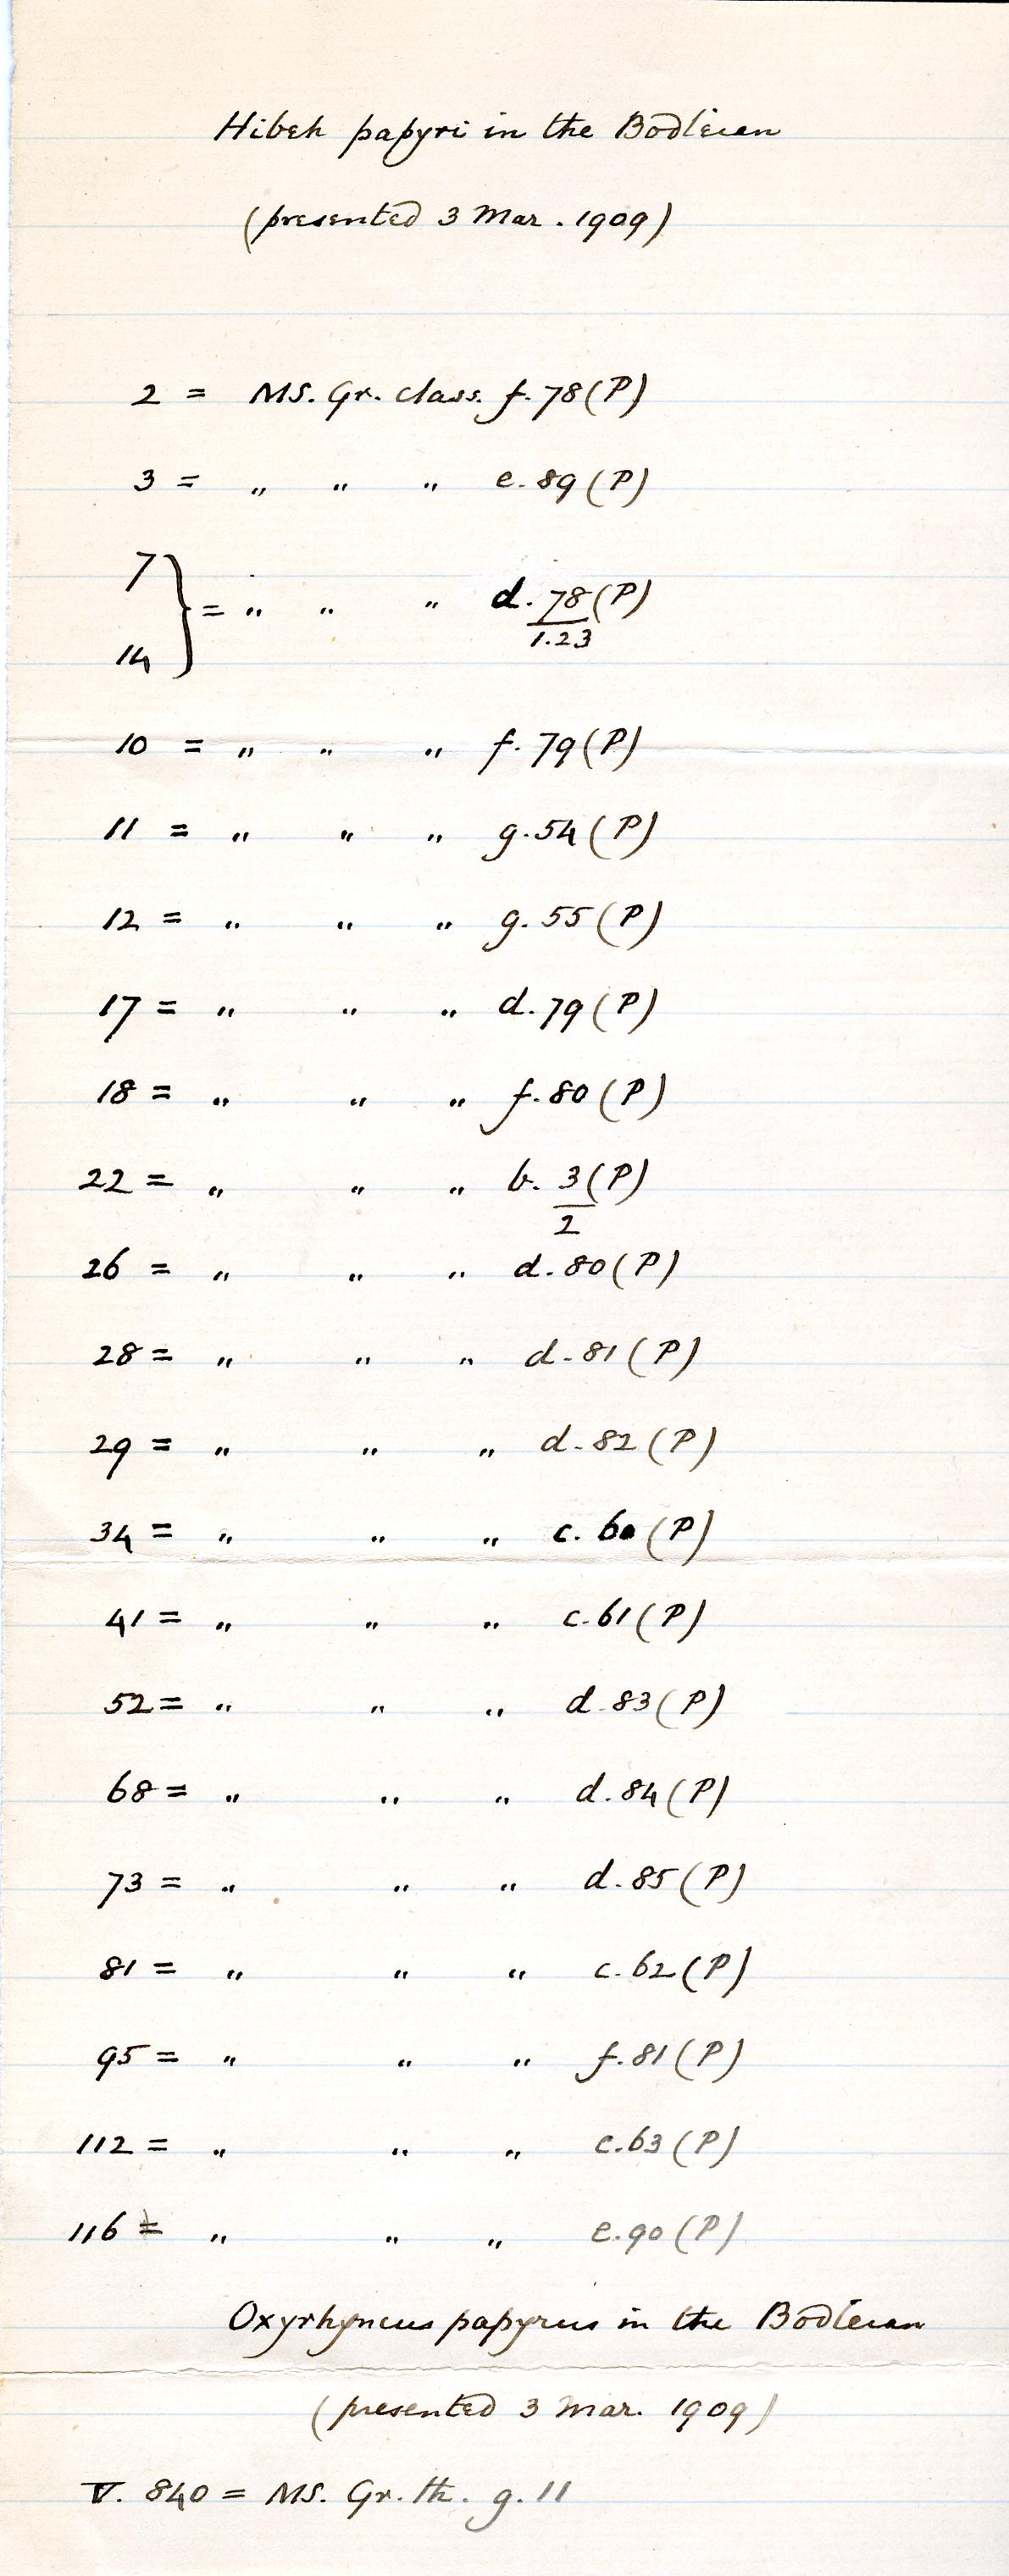 Hibeh papyri in the Bodleian
(presented 3 Mar. 1909)
2 = MS. Gr. class. f. 78 (P)
3 = „ „ „ e. 89 (P)
7
} = „ „ „ d. 78 (P)
1.23
14
10 = „ „ „ f. 79 (P)
11 = „ „ „ g. 54 (P)
12 = „ „ „ g. 55 (P)
17 = „ „ „ d. 79 (P)
18 = „ „ „ f. 80 (P)
22 = „ „ „ b. 3 (P)
2
26 = „ „ „ d. 80 (P)
28 = „ „ „ d. 81 (P)
29 = „ „ „ d. 82 (P)
34 = „ „ „ c. 60 (P)
41 = „ „ „ c. 61 (P)
52 = „ „ „ d. 83 (P)
68 = „ „ „ d. 84 (P)
73 = „ „ „ d. 85 (P)
81 = „ „ „ c. 62 (P)
95 = „ „ „ f. 81 (P)
112 = „ „ „ c. 63 (P)
116 = „ „ „ e. 90 (P)
Oxyrhyncus papyrus in the Bodleian
(presented 3 Mar. 1909)
V. 840 = MS. Gr. th. g. 11